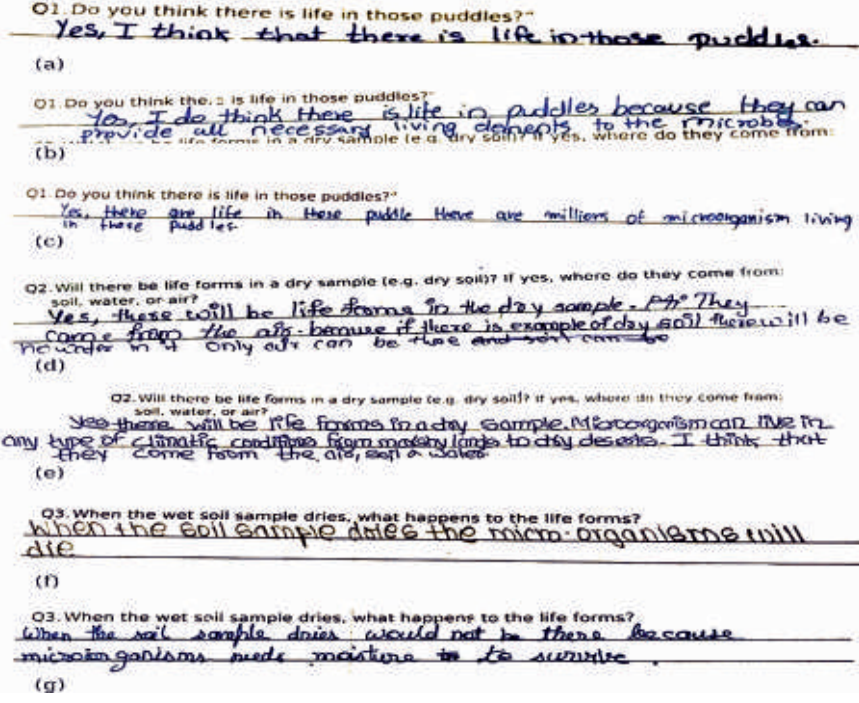 Q1. Do you think there is life in those puddles?"
Yes, I think that there is life in those puddles.
(a)
Q1. Do you think the. : is life in those puddles?"
Yes, I do think there is life in puddles because they can
provide all necessary living elements to the microbes.
life forms in a dry sample (e.g. dry soil)? If yes, where do they come from:
(b)
Q1. Do you think there is life in those puddles?"
Yes, there are life in these puddle there are millions of microorganism living
in these puddles.
(c)
Q2. Will there be life forms in a dry sample (e.g. dry soil)? If yes, where do they come from:
soil, water, or air?
Yes, these will be life forms in the dry sample. They
come from the air. because if there is example of day soil there will be
no water in it only air can be there and soil can be
(d)
Q2. Will there be life forms in a dry sample (e.g. dry soil)? If yes, where do they come from:
soil, water, or air?
Yes there will be life forms in a dry sample. Microorganism can live in
any type of climatic conditions from marshy lands to dry deserts. I think that
they come from the air, soil & water
(e)
Q3. When the wet soil sample dries, what happens to the life forms?
When the soil sample dries the micro-organisms will
die
(f)
Q3. When the wet soil sample dries, what happens to the life forms?
When the soil sample dries would not be there because
microorganisms needs moisture to survive.
(g)